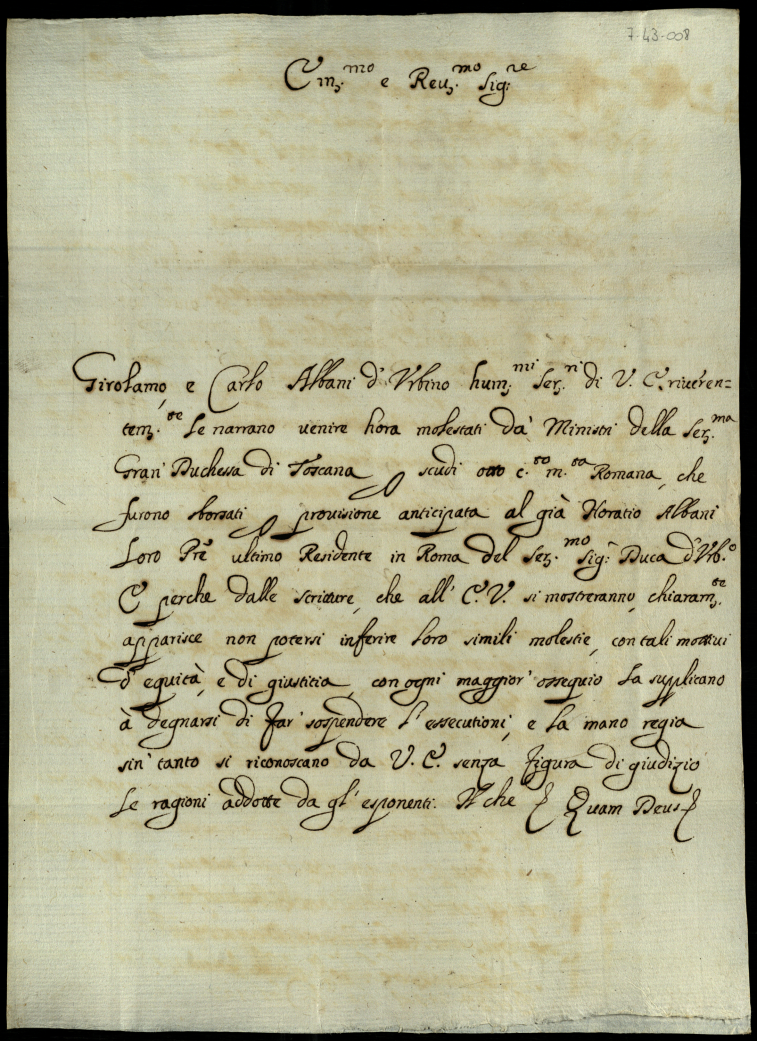 7-43-008
Em.mo e Reu.mo Sig.re
Girolamo, e Carlo Albani d'Vrbino hum.mi Ser.ri di V. E. riueren=
tem.te Le narrano uenire hora molestati da' Ministri della Ser.ma
Gran' Duchessa di Toscana scudi otto c.to m.ta Romana, che
furono sborsati prouisione anticipata al già Horatio Albani
Loro Pre ultimo Residente in Roma del Ser.mo Sig.r Duca d'Vrb.o
E perche dalle scritture, che all' E. V. si mostreranno, chiaram.te
apparisce non potersi inferire Loro simili molestie, con tali mottiui
d'equità, e di giustitia, con ogni maggior' ossequio La supplicano
à degnarsi di far' sospendere l'essecutioni, e la mano regia
sin' tanto si riconoscano da V. E. senza figura di giudizio
Le ragioni addotte da gl'esponenti. Il che Quam Deus